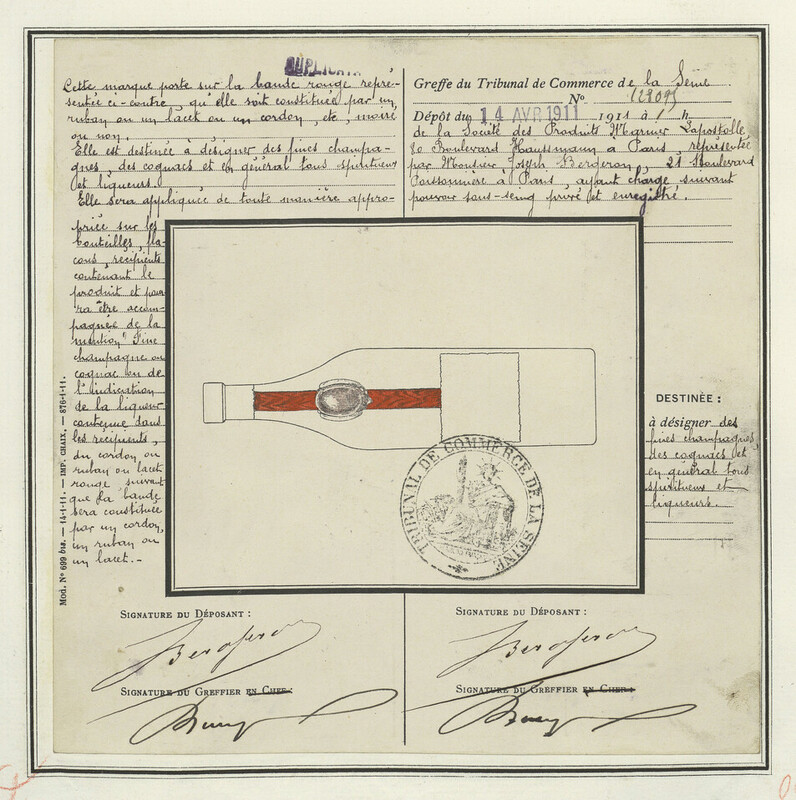 DUPLICATA
Cette marque porte sur la bande rouge repré-
sentée ci-contre, qu'elle soit constituée par un
ruban ou un lacet ou un cordon, etc, moiré
ou non.
Elle est destinée à désigner des fines champa-
gnes, des cognacs et en général tous spiritueux
et liqueurs.
Elle sera appliquée de toute manière appro-
priée sur les
bouteilles, fla-
cons, récipients
contenant le
produit et pour-
ra être accom-
pagnée de la
mention "Fine
champagne ou
cognac ou de
l'indication
de la liqueur
contenue dans
les récipients,
du cordon ou
ruban ou lacet
rouge suivant
que la bande
sera constituée
par un cordon,
un ruban ou
un lacet.-
Mod. N° 699 bis. — 14-1-11. — IMP. CHAIX. — 876-1-11.
Greffe du Tribunal de Commerce de la Seine
No
Dépôt du 14 AVR 1911 1911 à h
de la Société des Produits Marnier Lapostolle,
80 Boulevard Haussmann à Paris, représentée
par Monsieur Joseph Bergeron, 21 Boulevard
Poissonnière à Paris, ayant charge suivant
pouvoir sous-seing privé et enregistré.
TRIBUNAL DE COMMERCE DE LA SEINE
DESTINÉE :
à désigner des
fines champagnes,
des cognacs et
en général tous
spiritueux et
liqueurs.
SIGNATURE DU DÉPOSANT :
Bergeron
SIGNATURE DU GREFFIER EN CHEF :
SIGNATURE DU DÉPOSANT :
Bergeron
SIGNATURE DU GREFFIER EN CHEF :